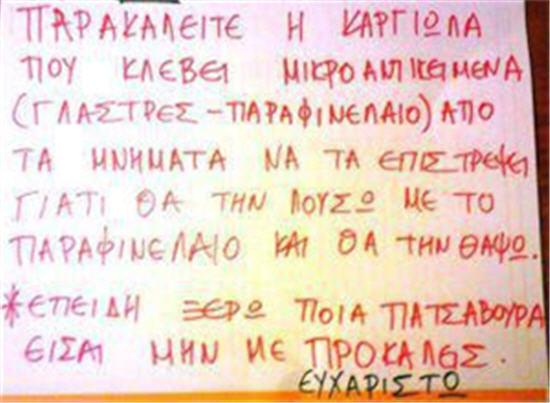 ΠΑΡΑΚΑΛΕΙΤΕ Η ΚΑΡΓΙΩΛΑ
ΠΟΥ ΚΛΕΒΕΙ ΜΙΚΡΟΑΝΤΙΚΕΙΜΕΝΑ
(ΓΛΑΣΤΡΕΣ-ΠΑΡΑΦΙΝΕΛΑΙΟ) ΑΠΟ
ΤΑ ΜΝΗΜΑΤΑ ΝΑ ΤΑ ΕΠΙΣΤΡΕΨΕΙ
ΓΙΑΤΙ ΘΑ ΤΗΝ ΛΟΥΣΩ ΜΕ ΤΟ
ΠΑΡΑΦΙΝΕΛΑΙΟ ΚΑΙ ΘΑ ΤΗΝ ΘΑΨΩ.
*ΕΠΕΙΔΗ ΞΕΡΩ ΠΟΙΑ ΠΑΤΣΑΒΟΥΡΑ
ΕΙΣΑΙ ΜΗΝ ΜΕ ΠΡΟΚΑΛΕΙΣ.
ΕΥΧΑΡΙΣΤΩ